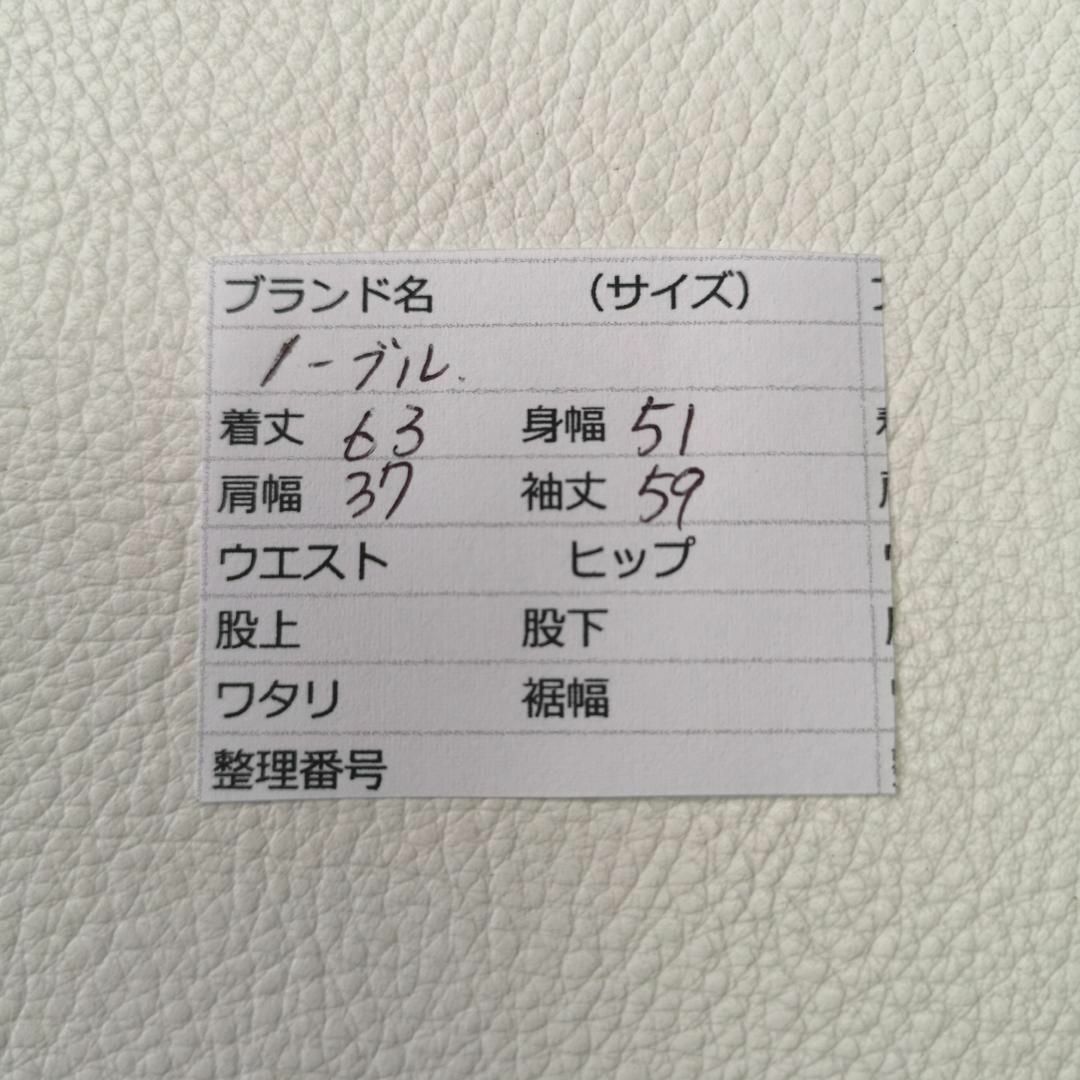 ブランド名 （サイズ）
ノーブル.
着丈 63 身幅 51
肩幅 37 袖丈 59
ウエスト ヒップ
股上 股下
ワタリ 裾幅
整理番号